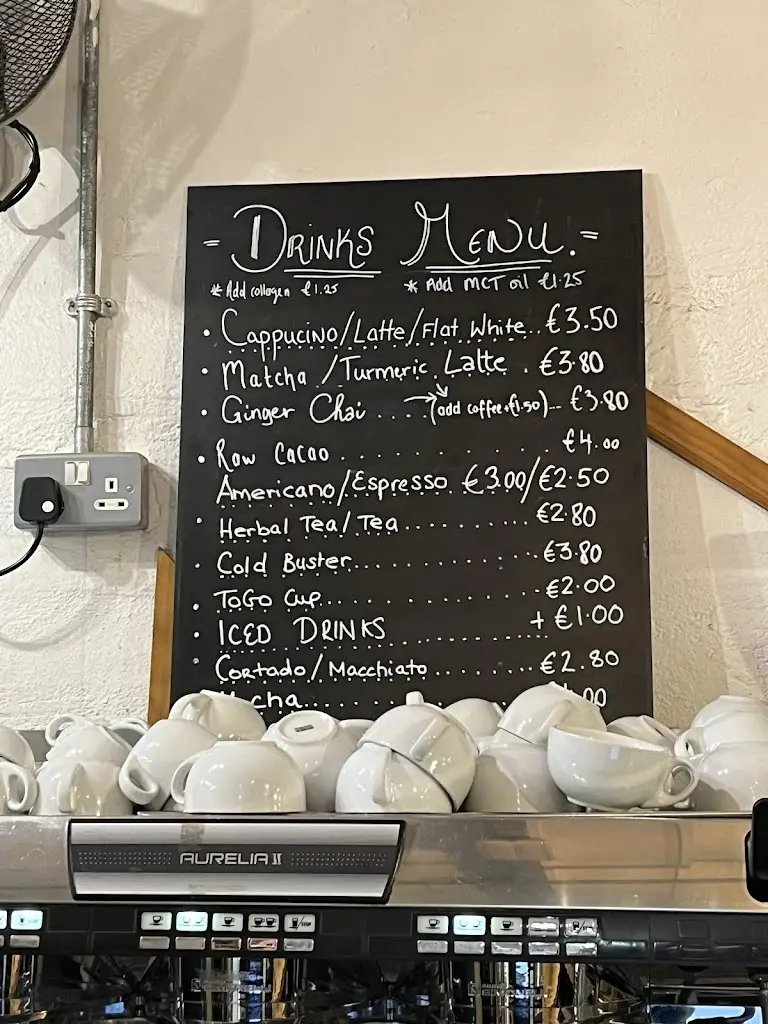 = DRINKS MENU. =
* Add collagen €1.25 * Add MCT oil €1.25
• Cappucino/Latte/Flat White.. €3.50
• Matcha /Turmeric Latte . €3.80
• Ginger Chai .... (add coffee+€1.50)... €3.80
• Raw Cacao ........... €4.00
Americano/Espresso €3.00/€2.50
• Herbal Tea/Tea.......... €2.80
• Cold Buster............. €3.80
• ToGo Cup.............. €2.00
• ICED DRINKS ............ + €1.00
• Cortado/Macchiato........ €2.80
AURELIA II